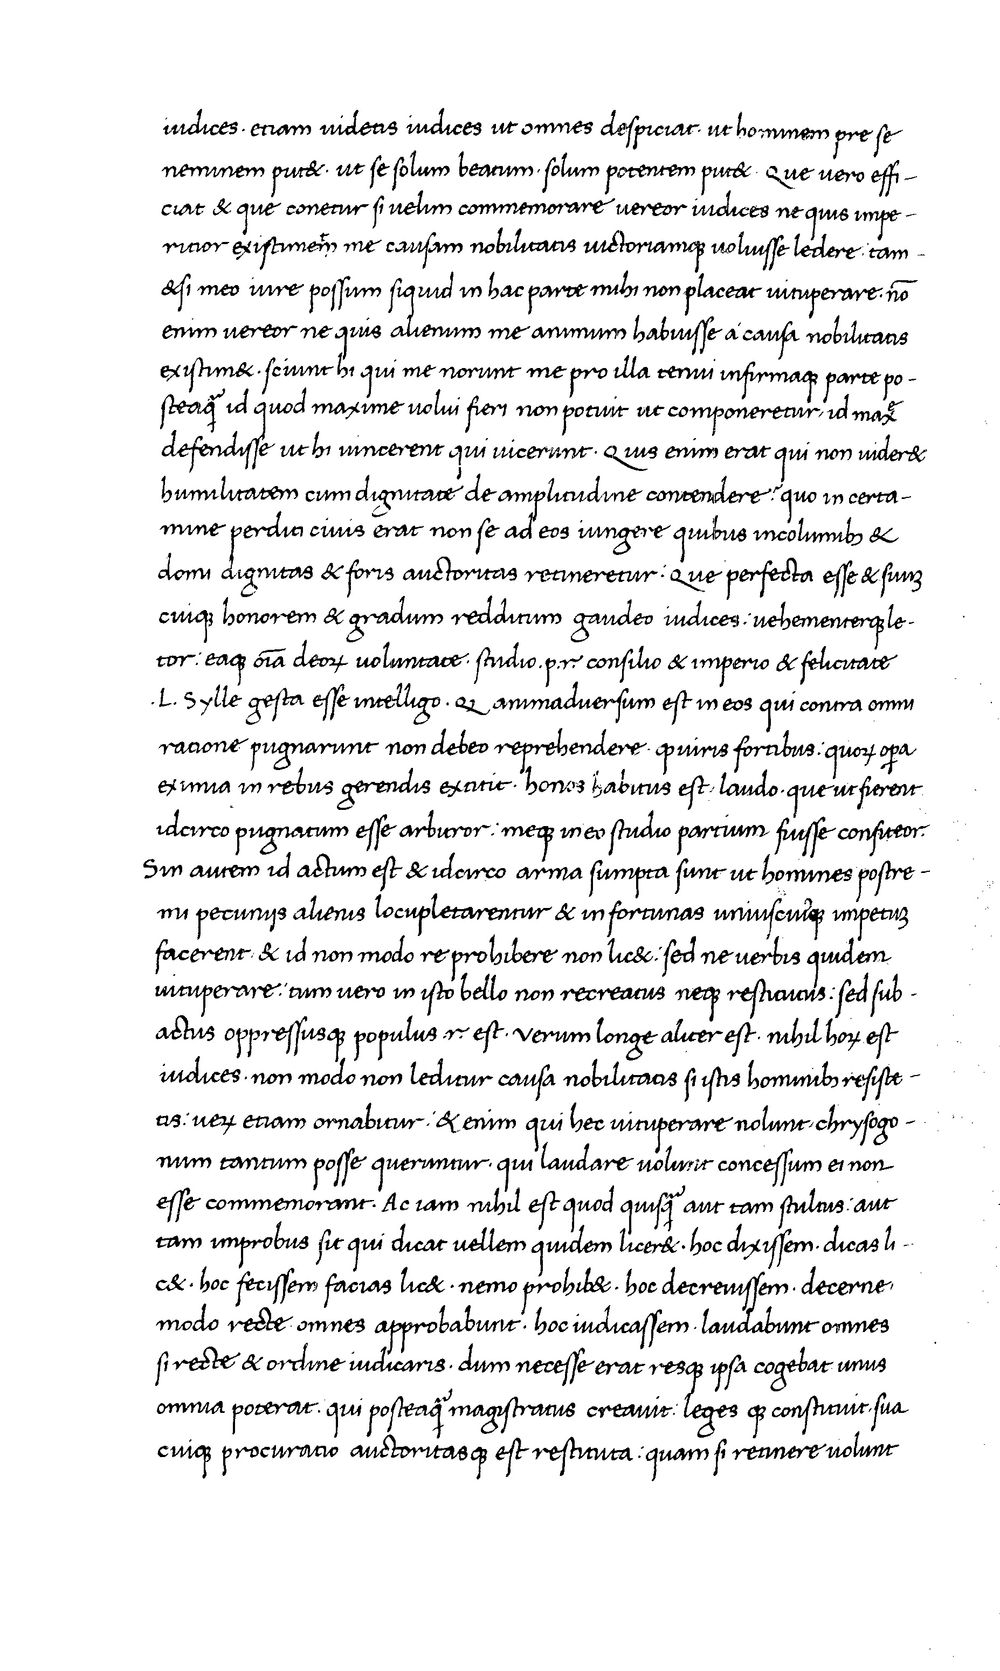 iudices · etiam uidetis iudices ut omnes despiciat · ut hominem pre se
neminem put& · ut se solum beatum · solum potentem put& · Que uero effi-
ciat & que conetur si uelim commemorare uereor iudices ne quis impe-
ritior existimet me causam nobilitatis uictoriamqꝫ uoluisse ledere · tam-
&si meo iure possum siquid in hac parte mihi non placeat uituperare · nō
enim uereor ne quis alienum me animum habuisse a causa nobilitatis
existim& · sciunt hi qui me norunt me pro illa tenui infirmaqꝫ parte po-
steaq̃ id quod maxime uolui fieri non potuit ut componeretur · id maxē
defendisse ut hi uincerent qui uicerunt · Quis enim erat qui non uider&
humilitatem cum dignitate de amplitudine contendere? quo in certa-
mine perditi ciuis erat non se ad eos iungere quibus incolumibꝫ &
domi dignitas & foris auctoritas retineretur : Que perfecta esse & suuꝫ
cuiqꝫ honorem & gradum redditum gaudeo iudices : uehementerqꝫ le-
tor : eaqꝫ oīa deoꝝ uoluntate · studio .p.r. consilio & imperio & felicitate
.L. Sylle gesta esse intelligo · Qꝫ animaduersum est in eos qui contra omni
ratione pugnarunt non debeo reprehendere · ꝙ uiris fortibus : quoꝝ oꝑa
eximia in rebus gerendis extitit · honos habitus est · laudo · que ut fierent
idcirco pugnatum esse arbitror : meqꝫ in eo studio partium fuisse confiteor.
Sin autem id actum est & idcirco arma sumpta sunt ut homines postre-
mi pecunijs alienis locupletarentur & in fortunas uniuscuiusqꝫ impetuꝫ
facerent · & id non modo re prohibere non lic& : sed ne uerbis quidem
uituperare : tum uero in isto bello non recreatus neqꝫ restitutus : sed sub-
actus oppressusqꝫ populus .r. est · Verum longe aliter est · nihil hoꝝ est
iudices · non modo non leditur causa nobilitatis si istis hominibꝫ resiste-
tis : ueꝝ etiam ornabitur : & enim qui hec uituperare nolunt · chrysogo-
num tantum posse queruntur · qui laudare uolunt concessum ei non
esse commemorant · Ac iam nihil est quod quisq̃ aut tam stultus : aut
tam improbus sit qui dicat uellem quidem licer& · hoc dixissem · dicas li-
c& · hoc fecissem facias lic& · nemo prohib& · hoc decreuissem · decerne
modo recte omnes approbabunt · hoc iudicassem · laudabunt omnes
si recte & ordine iudicaris · dum necesse erat resqꝫ ipsa cogebat unus
omnia poterat · qui posteaq̃ magistratus creauit : leges qꝫ constituit · sua
cuiqꝫ procuratio auctoritasqꝫ est restituta : quam si retinere uolunt